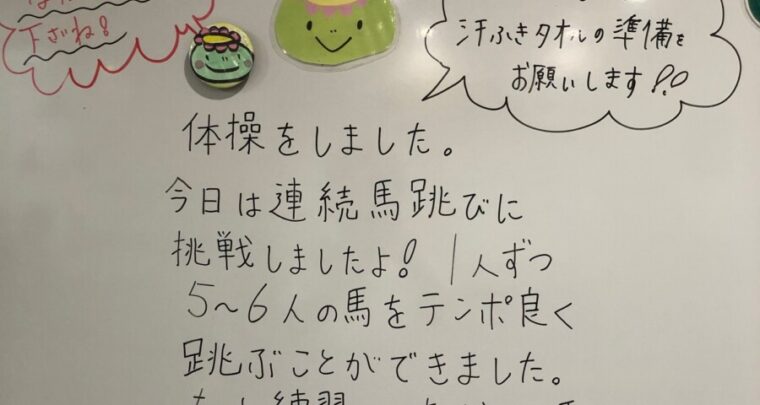 下さね!
汗ふきタオルの準備を
お願いします!!
体操をしました。
今日は連続馬跳びに
挑戦しましたよ! 1人ずつ
5〜6人の馬をテンポ良く
跳ぶことができました。